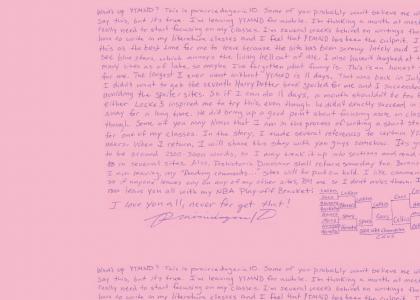 What's up YTMND? This is prairiedogeric10. Some of you probably won't believe me w
say this, but it's true. I'm leaving YTMND for awhile. I'm thinking a month at most
really need to start focusing on my classes. I'm several weeks behind on writings tha
have to write in my literature classes and I feel that YTMND has been the culprit. I
this as the best time for me to leave because the site has been screwy lately and I
see blue stars, which annoys the living hell out of me. I also haven't laughed at
many sites as of late, so maybe I've forgotten what funny is. This is an honest
for me. The longest I ever went without YTMND is 11 days. That was back in July
I didn't want to see the seventh Harry Potter book spoiled for me and I succeeded
avoiding the spoiler sites. So if I can do 11 days, a month shouldn't be too
either. Locke5 inspired me to try this, even though he didn't exactly succeed in
away for a long time. He did bring up a good point about focusing more on class
though. Some of you may know that I am in the process of writing a short story
for one of my classes. In the story, I made several references to certain YTM
users. When I return, I will share this story with you guys somehow. It's go
to be around 2500-3000 words, so I may break it up into sections and
in several sites. Also, Prehistoric Dinosaur shall release someday too.
I am pausing, my "Pending comments..." sites will be put on hold. I like commen
so if anyone leaves any on any of my other sites, PM me so I don't miss them. I
now leave you all with my NBA Playoff Bracket!
I love you all, never forget that!
What's up YTMND? This is prairiedogeric10. Some of you probably won't believe me w
say this, but it's true. I'm leaving YTMND for awhile. I'm thinking a month at most
really need to start focusing on my classes. I'm several weeks behind on writings tha
have to write in my literature classes and I feel that YTMND has been the culprit. I